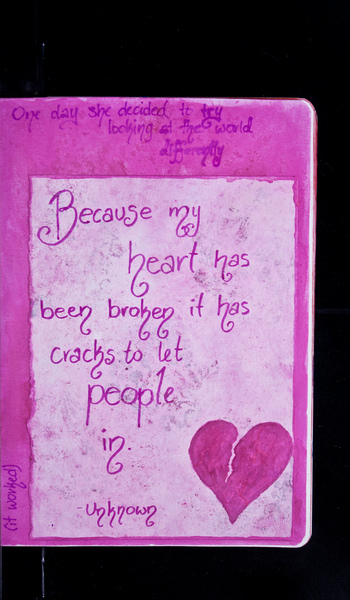 One day she decided to try
looking at the world
differently
Because my
heart has
been broken it has
cracks to let
people
in.
-unknown
(it worked)